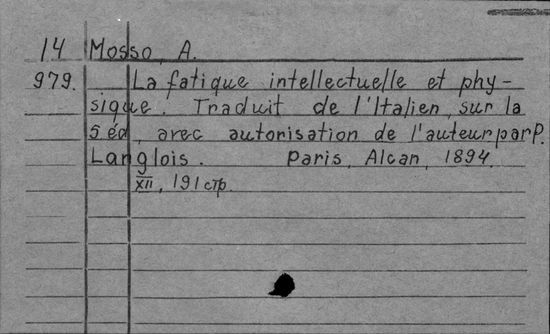 14 Mosso, A.
979. La fatigue intellectuelle et phy-
sique. Traduit de l'Italien, sur la
5 éd, avec autorisation de l'auteur par P.
Langlois. Paris, Alcan, 1894.
XII, 191 стр.